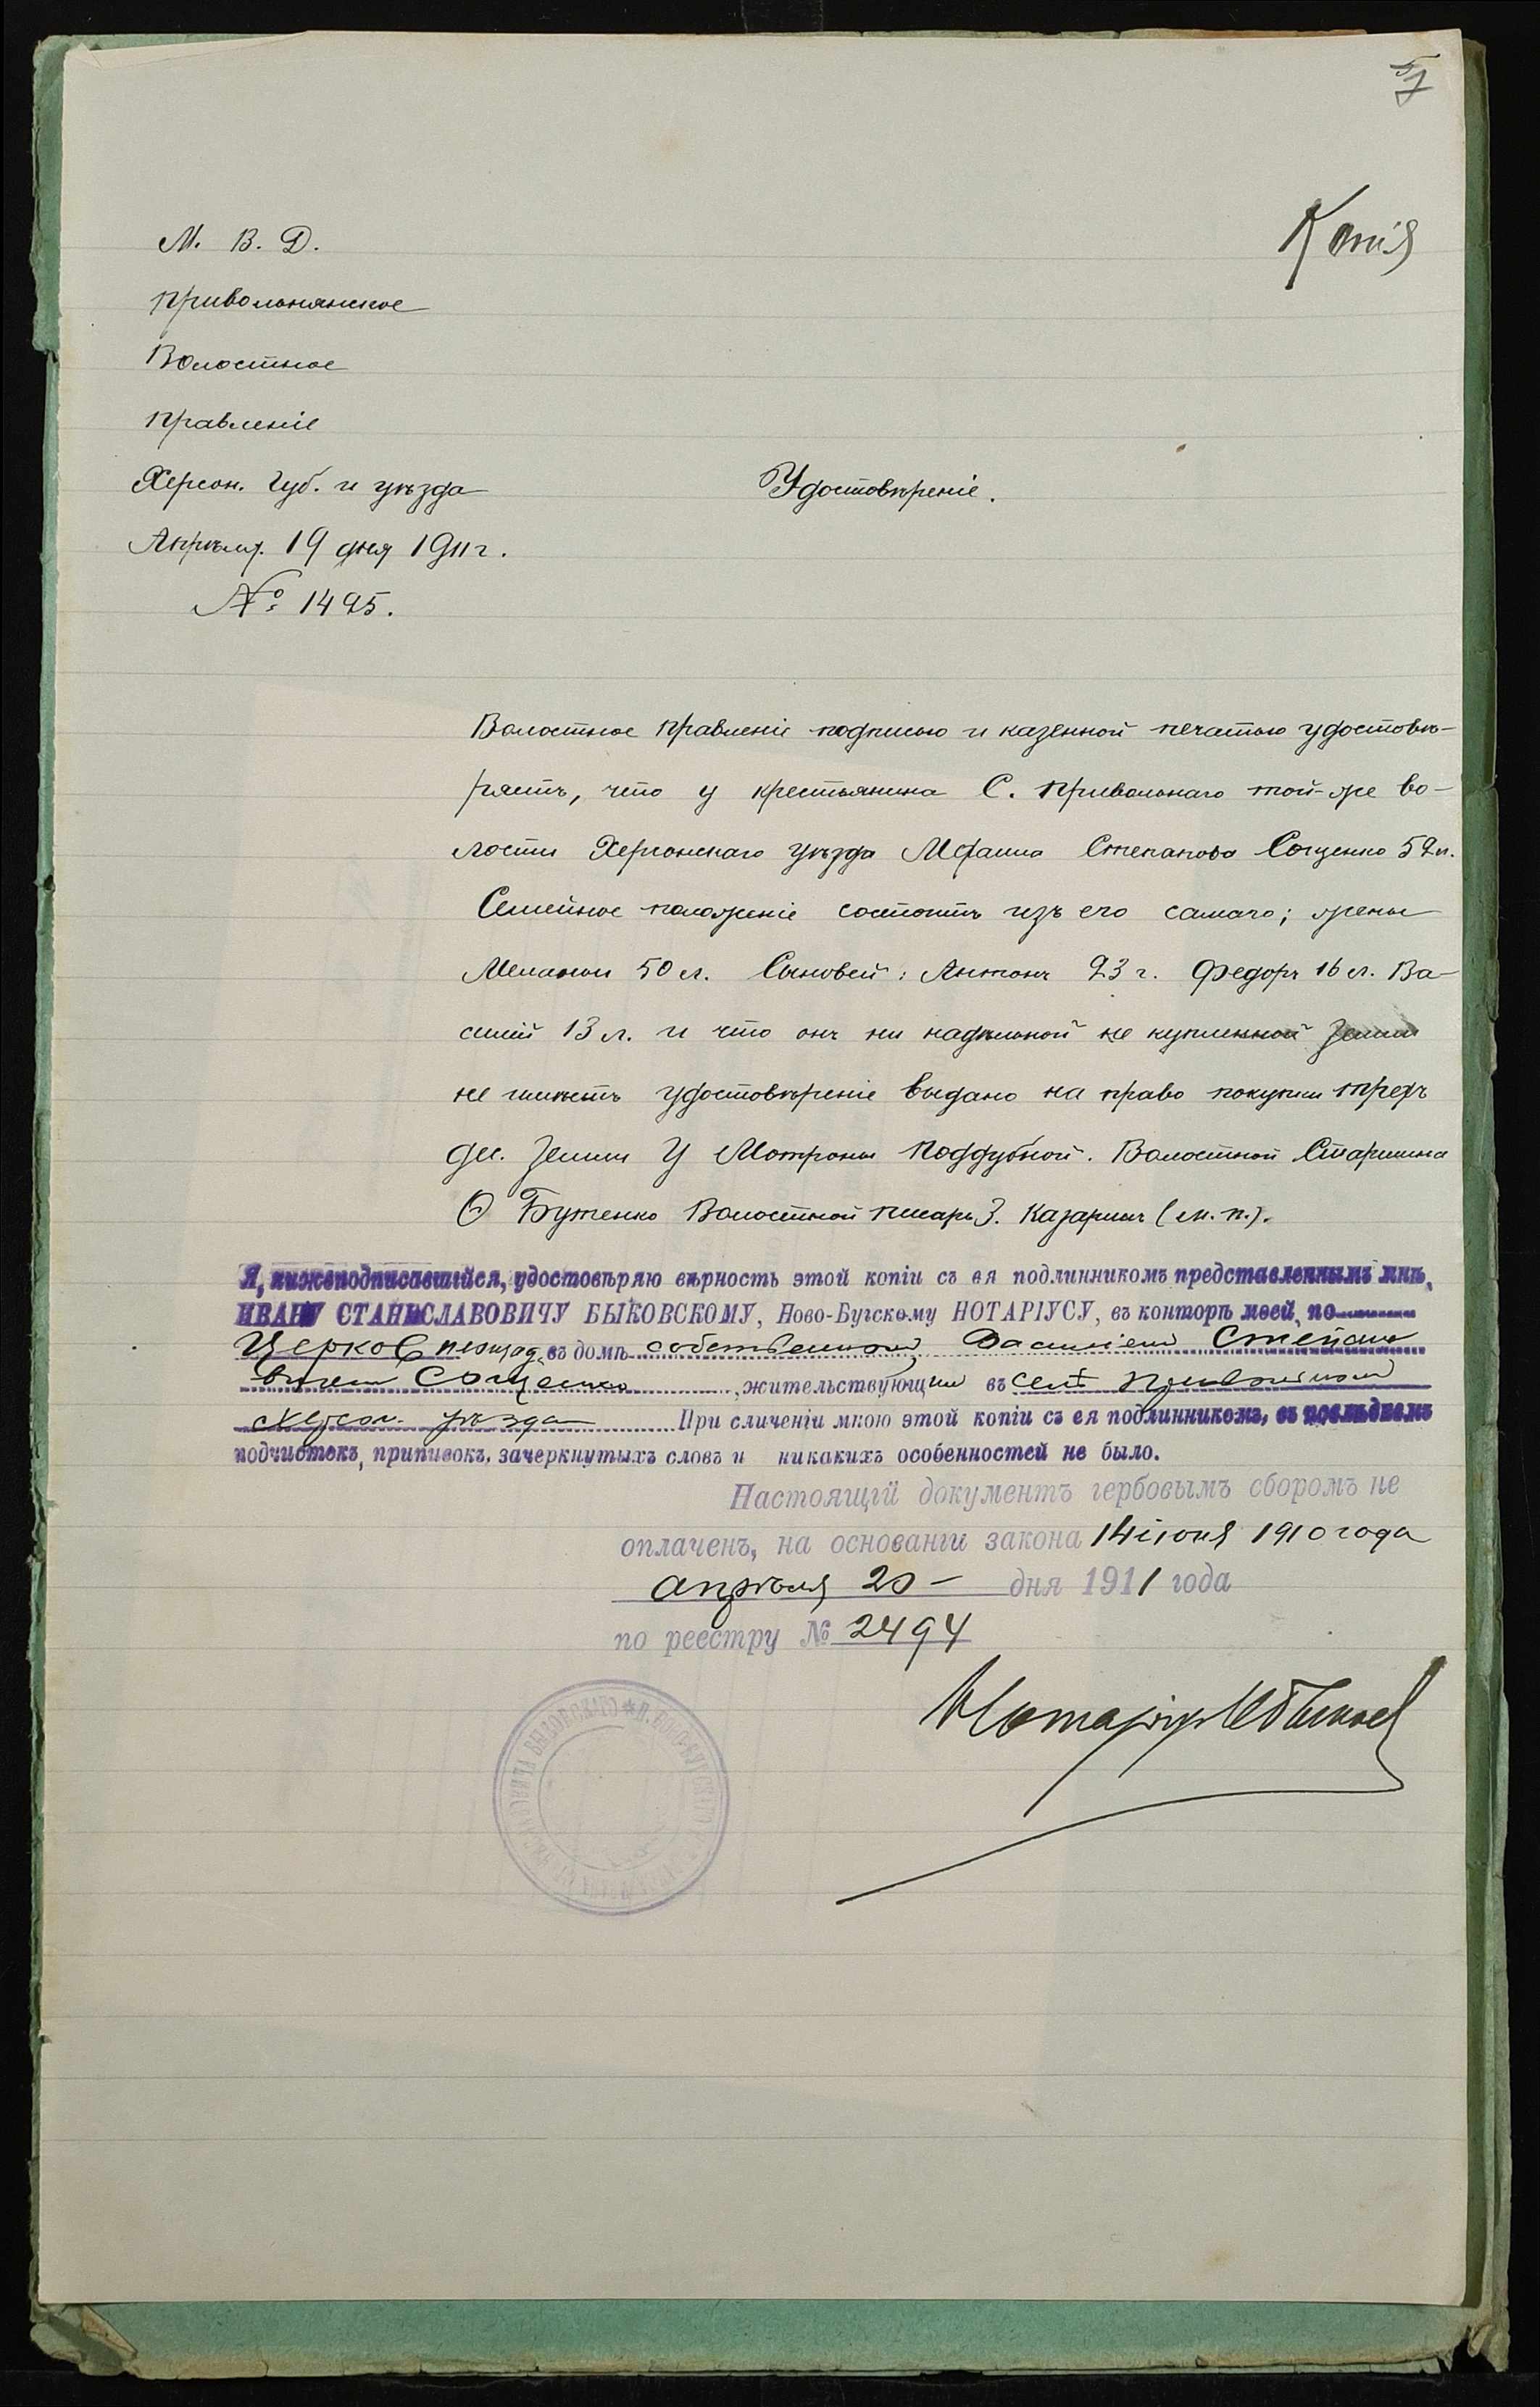 57
Копія
М. В. Д.
Привольнянское
Волостное
Правленіе
Херсон. Губ. и уѣзда
Апрѣля 19 дня 1911 г.
№ 1495.
Удостовѣреніе.
Волостное Правленіе подписью и казенной печатью удостовѣ-
ряетъ, что у крестьянина С. Привольнаго той-же во-
лости Херсонскаго уѣзда Степанова Сощенко 52 л.
Семейное положеніе состоитъ изъ его самаго; жены
Меланьи 50 л. Сыновей: Антонъ 23 г. Федоръ 16 л. Ва-
силій 13 л. и что онъ ни надѣльной не купленной земли
не имѣетъ удостовѣреніе выдано на право покупки трехъ
дес. земли У Мотроны Поддубной. Волостной Старшина
О Бутенко Волостной писарь З. Казаринъ (м. п.).
Я, нижеподписавшійся, удостовѣряю вѣрность этой копіи съ ея подлинникомъ представленнымъ мнѣ,
ИВАНУ СТАНИСЛАВОВИЧУ БЫКОВСКОМУ, Ново-Бугскому НОТАРІУСУ, въ конторѣ моей, по
Церков площад. въ домѣ собственном, Степано
вичем Сощенко, жительствующим въ селѣ Привольном
Херсон. уѣзда При сличеніи мною этой копіи съ ея подлинникомъ, въ послѣднемъ
подчистокъ, приписокъ, зачеркнутыхъ словъ и никакихъ особенностей не было.
Настоящій документъ гербовымъ сборомъ не
оплаченъ, на основаніи закона 14 іюня 1910 года
апрѣля 20 - дня 1911 года
по реестру № 2494
Нотаріус